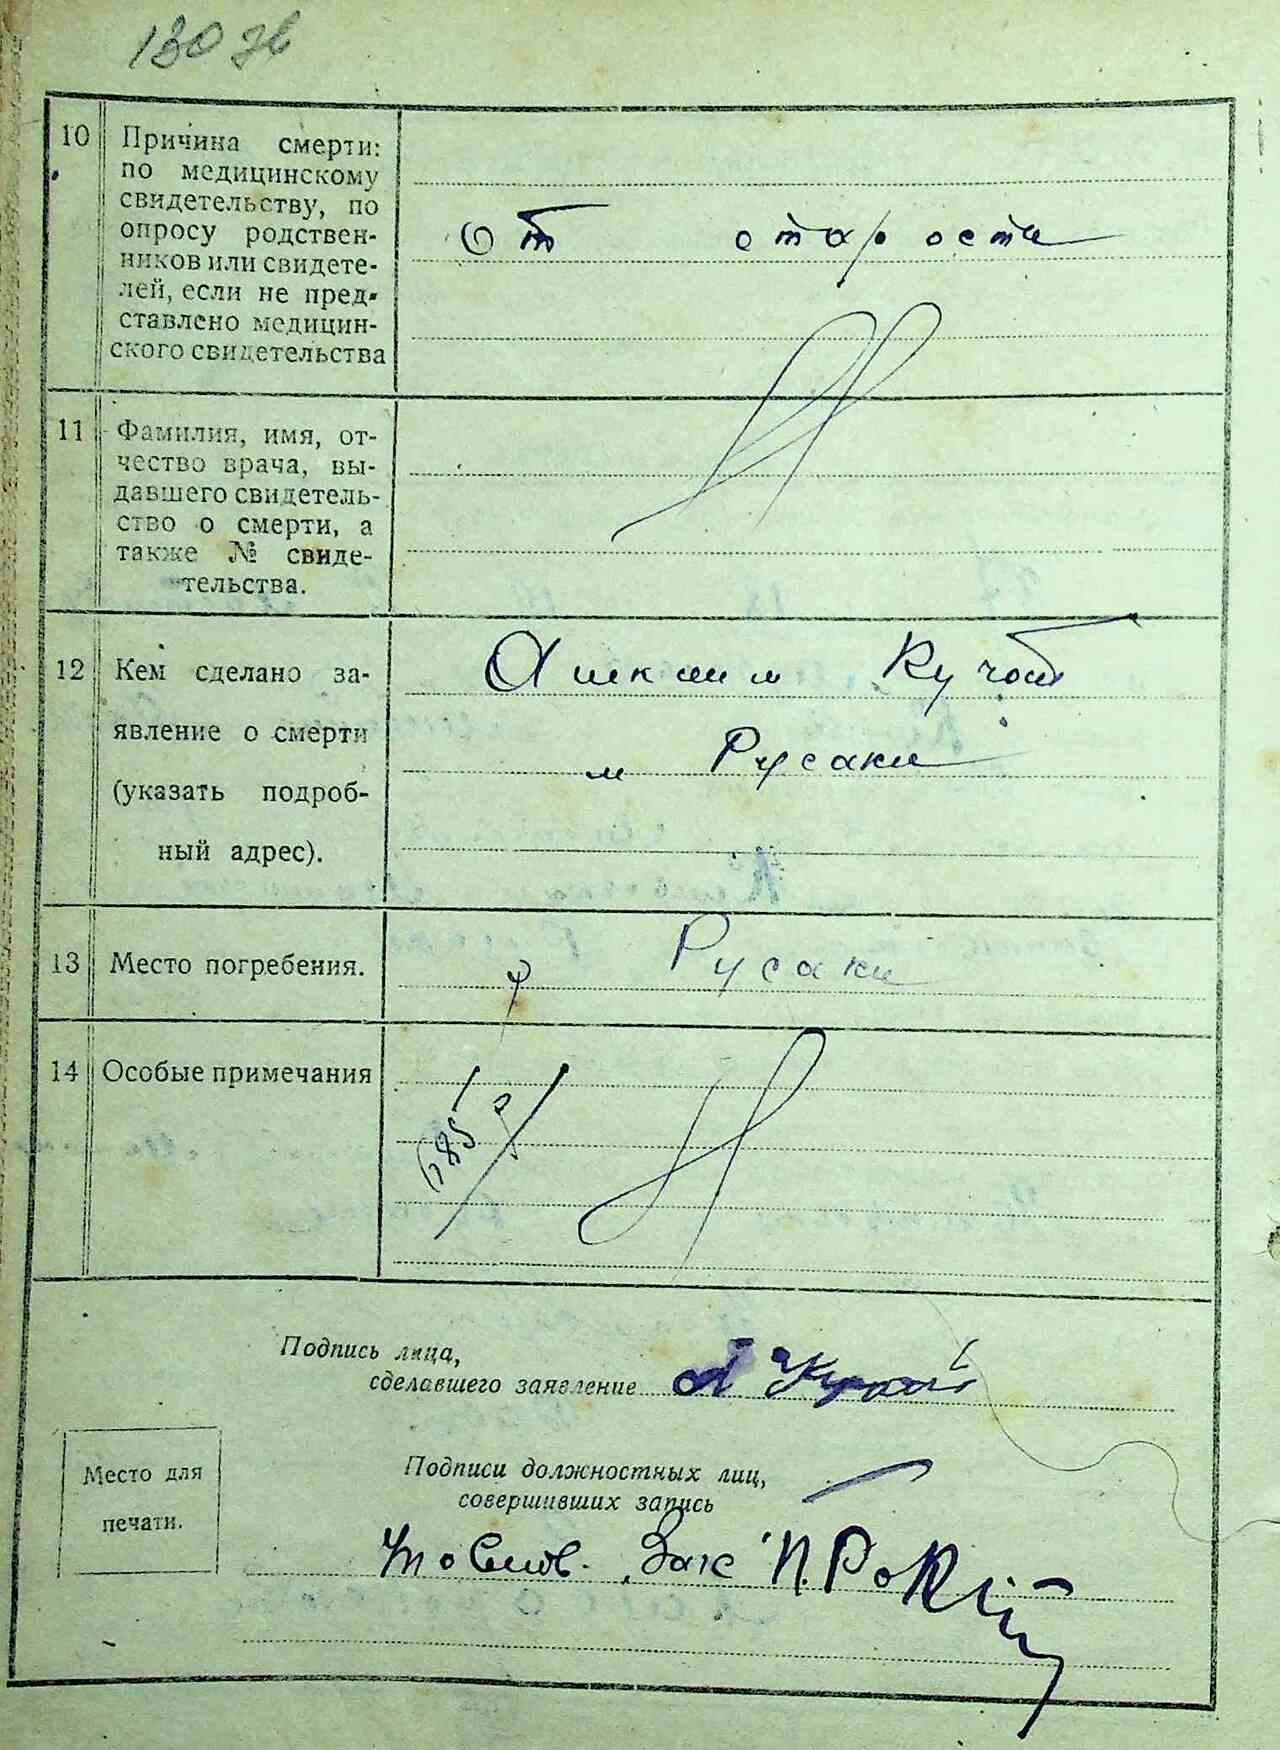 10 Причина смерти:
по медицинскому
свидетельству, по
опросу родствен-
ников или свидете-
лей, если не пред-
ставлено медицин-
ского свидетельства
От старости
11 Фамилия, имя, от-
чество врача, вы-
давшего свидетель-
ство о смерти, а
также № свиде-
тельства.
12 Кем сделано за-
явление о смерти
(указать подроб-
ный адрес).
м Русаки
13 Место погребения.
Русаки
14 Особые примечания
685
Подпись лица,
сделавшего заявление
Место для
печати.
Подписи должностных лиц,
совершивших запись